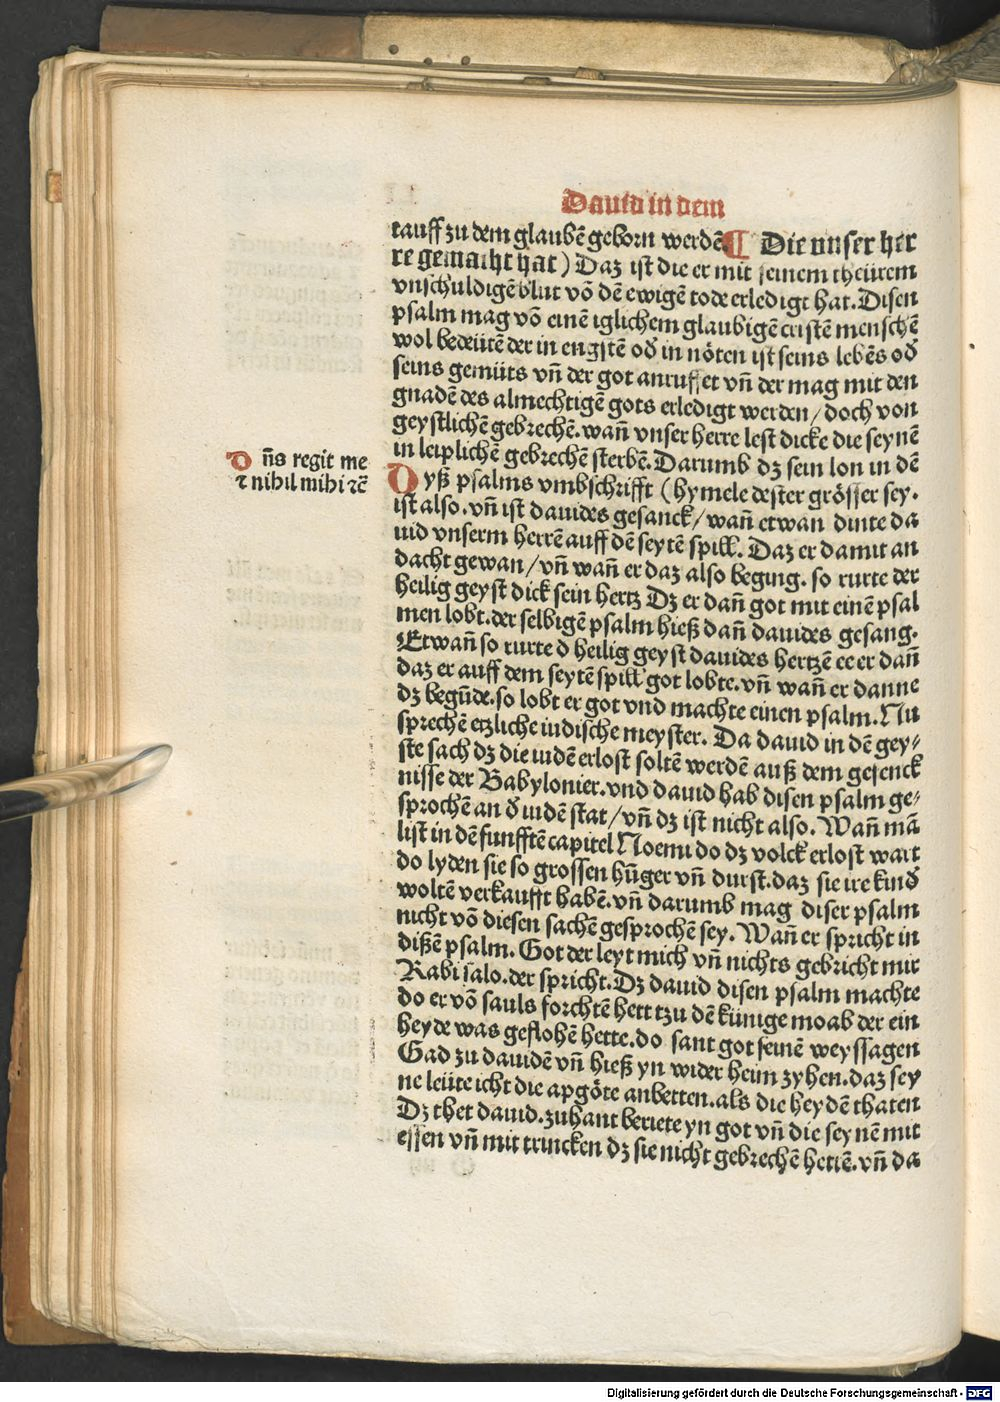 Dauid in dem
tauff zu dem glaubē geborn werdē. ¶ Die vnser her
re gemacht hat) Daz ist die er mit seinem theürem
vnschuldigē blut vō dē ewigē tode erledigt hat. Disen
psalm mag vō einē iglichem glaubigē cristē menschē
wol bedeütē der in engstē oď in nöten ist seins lebēs oď
seins gemüts vn̄ der got anruffet vn̄ der mag mit den
gnadē des almechtigē gots erledigt werden/ doch von
geystlichē gebrechē. wan̄ vnser herre lest dicke die seynē
in leiplichē gebrechē sterbē. Darumb dz sein lon in dē
Dn̄s regit me
⁊ nihil mihi ⁊c̄
Dyß psalms vmbschrifft (hymele dester grösser sey.
ist also. vn̄ ist dauides gesanck/ wan̄ etwan dinte da
uid vnserm herrē auff dē seytē spill. Daz er damit an
dacht gewan/ vn̄ wan̄ er daz also beging. so rurte der
heilig geyst dick sein hertz Dz er dan̄ got mit einē psal
men lobt. der selbigē psalm hieß dan̄ dauides gesang.
Etwan̄ so rurte ď heilig geyst dauides hertzē ee er dan̄
daz er auff dem seytē spill got lobte. vn̄ wan̄ er danne
dz begūde. so lobt er got vnd machte einen psalm. Nu
sprechē etzliche iudische meyster. Da dauid in dē gey⸗
ste sach dz die iudē erlost soltē werdē auß dem gefenck
nisse der Babylonier. vnd dauid hab disen psalm ge⸗
sprochē an ď iudē stat/ vn̄ dz ist nicht also. Wan̄ mā
list in dē funfftē capitel Noemi do dz volck erlost wart
do lyden sie so grossen hūger vn̄ durst. daz sie ire kinď
woltē verkaufft habē. vn̄ darumb mag diser psalm
nicht vō diesen sachē gesprochē sey. Wan̄ er spricht in
dißē psalm. Got der leyt mich vn̄ nichts gebricht mir
Rabi salo. der spricht. Dz dauid disen psalm machte
do er vō sauls forchtē hett tzu dē künige moab der ein
heyde was geflohē hette. do sant got seinē weyssagen
Gad zu dauidē vn̄ hieß yn wider heim zyhen. daz sey
ne leüte icht die apgöte anbetten. als die heydē thaten
Dz thet dauid. zuhant beriete yn got vn̄ die seynē mit
essen vn̄ mit trincken dz sie nicht gebrechē hettē. vn̄ da
Digitalisierung gefördert durch die Deutsche Forschungsgemeinschaft - DFG